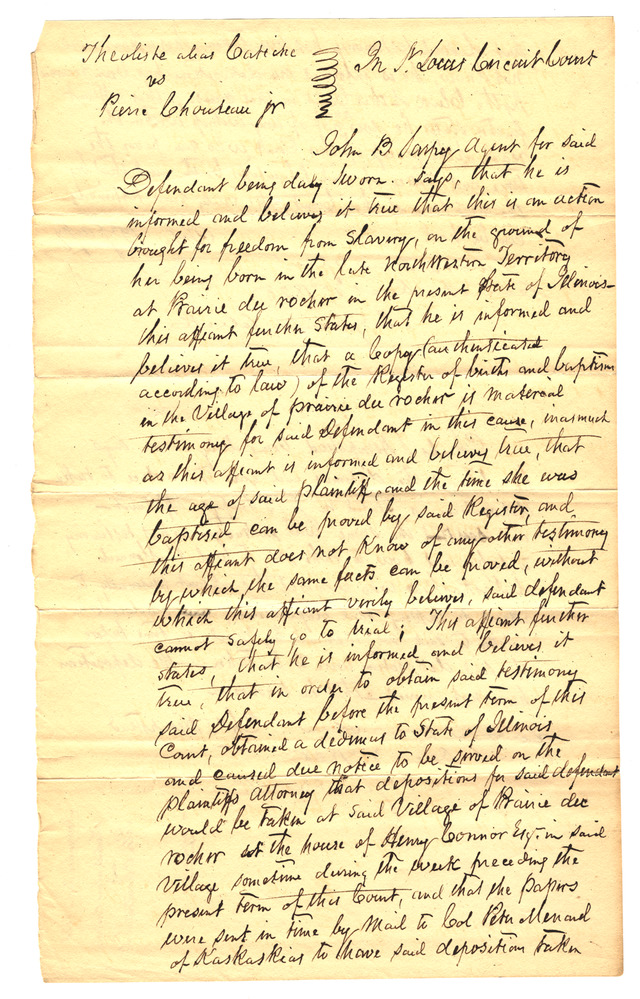 Theoliste alias Catiche
vs
Pierre Chouteau jr
In St Louis Circuit Court
John B. Sarpy Agent for said
Defendant being duly sworn. says, that he is
informed and believes it true that this is an action
bought for freedom from Slavery, on the ground of
her being born in the late North Western Territory
at Prairie du rocher in the present State of Illinois—
this affiant further States, that he is informed and
believes it true, that a Copy (authenticated
according to law) of the Register of births and baptism
in the Village of prairie du rocher is material
testimony for said Defendant in this cause, inasmuch
as this affiant is informed and believes true, that
the age of said plaintiff, and the time she was
baptised can be proved by said Register, and
this affiant does not Know of any other testimony
by which the same facts can be proved, without
which this affiant virily believes, said defendant
cannot safely go to trial; This affiant further
states, that he is informed and believes it
true, that in order to obtain said testimony
said Defendant before the present term of this
Court, obtained a dedimus to State of Illinois
and caused due notice to be served on the
plaintiffs Attorney that depositions for said defendant
would be taken at said Village of Prairie du
rocher at the house of Henry Connor Esqr. in said
Village sometime during the week preceding the
present term of this Court, and that the papers
were sent in time by Mail to Col Peter Menard
of Kaskaskias to have said depositions taken